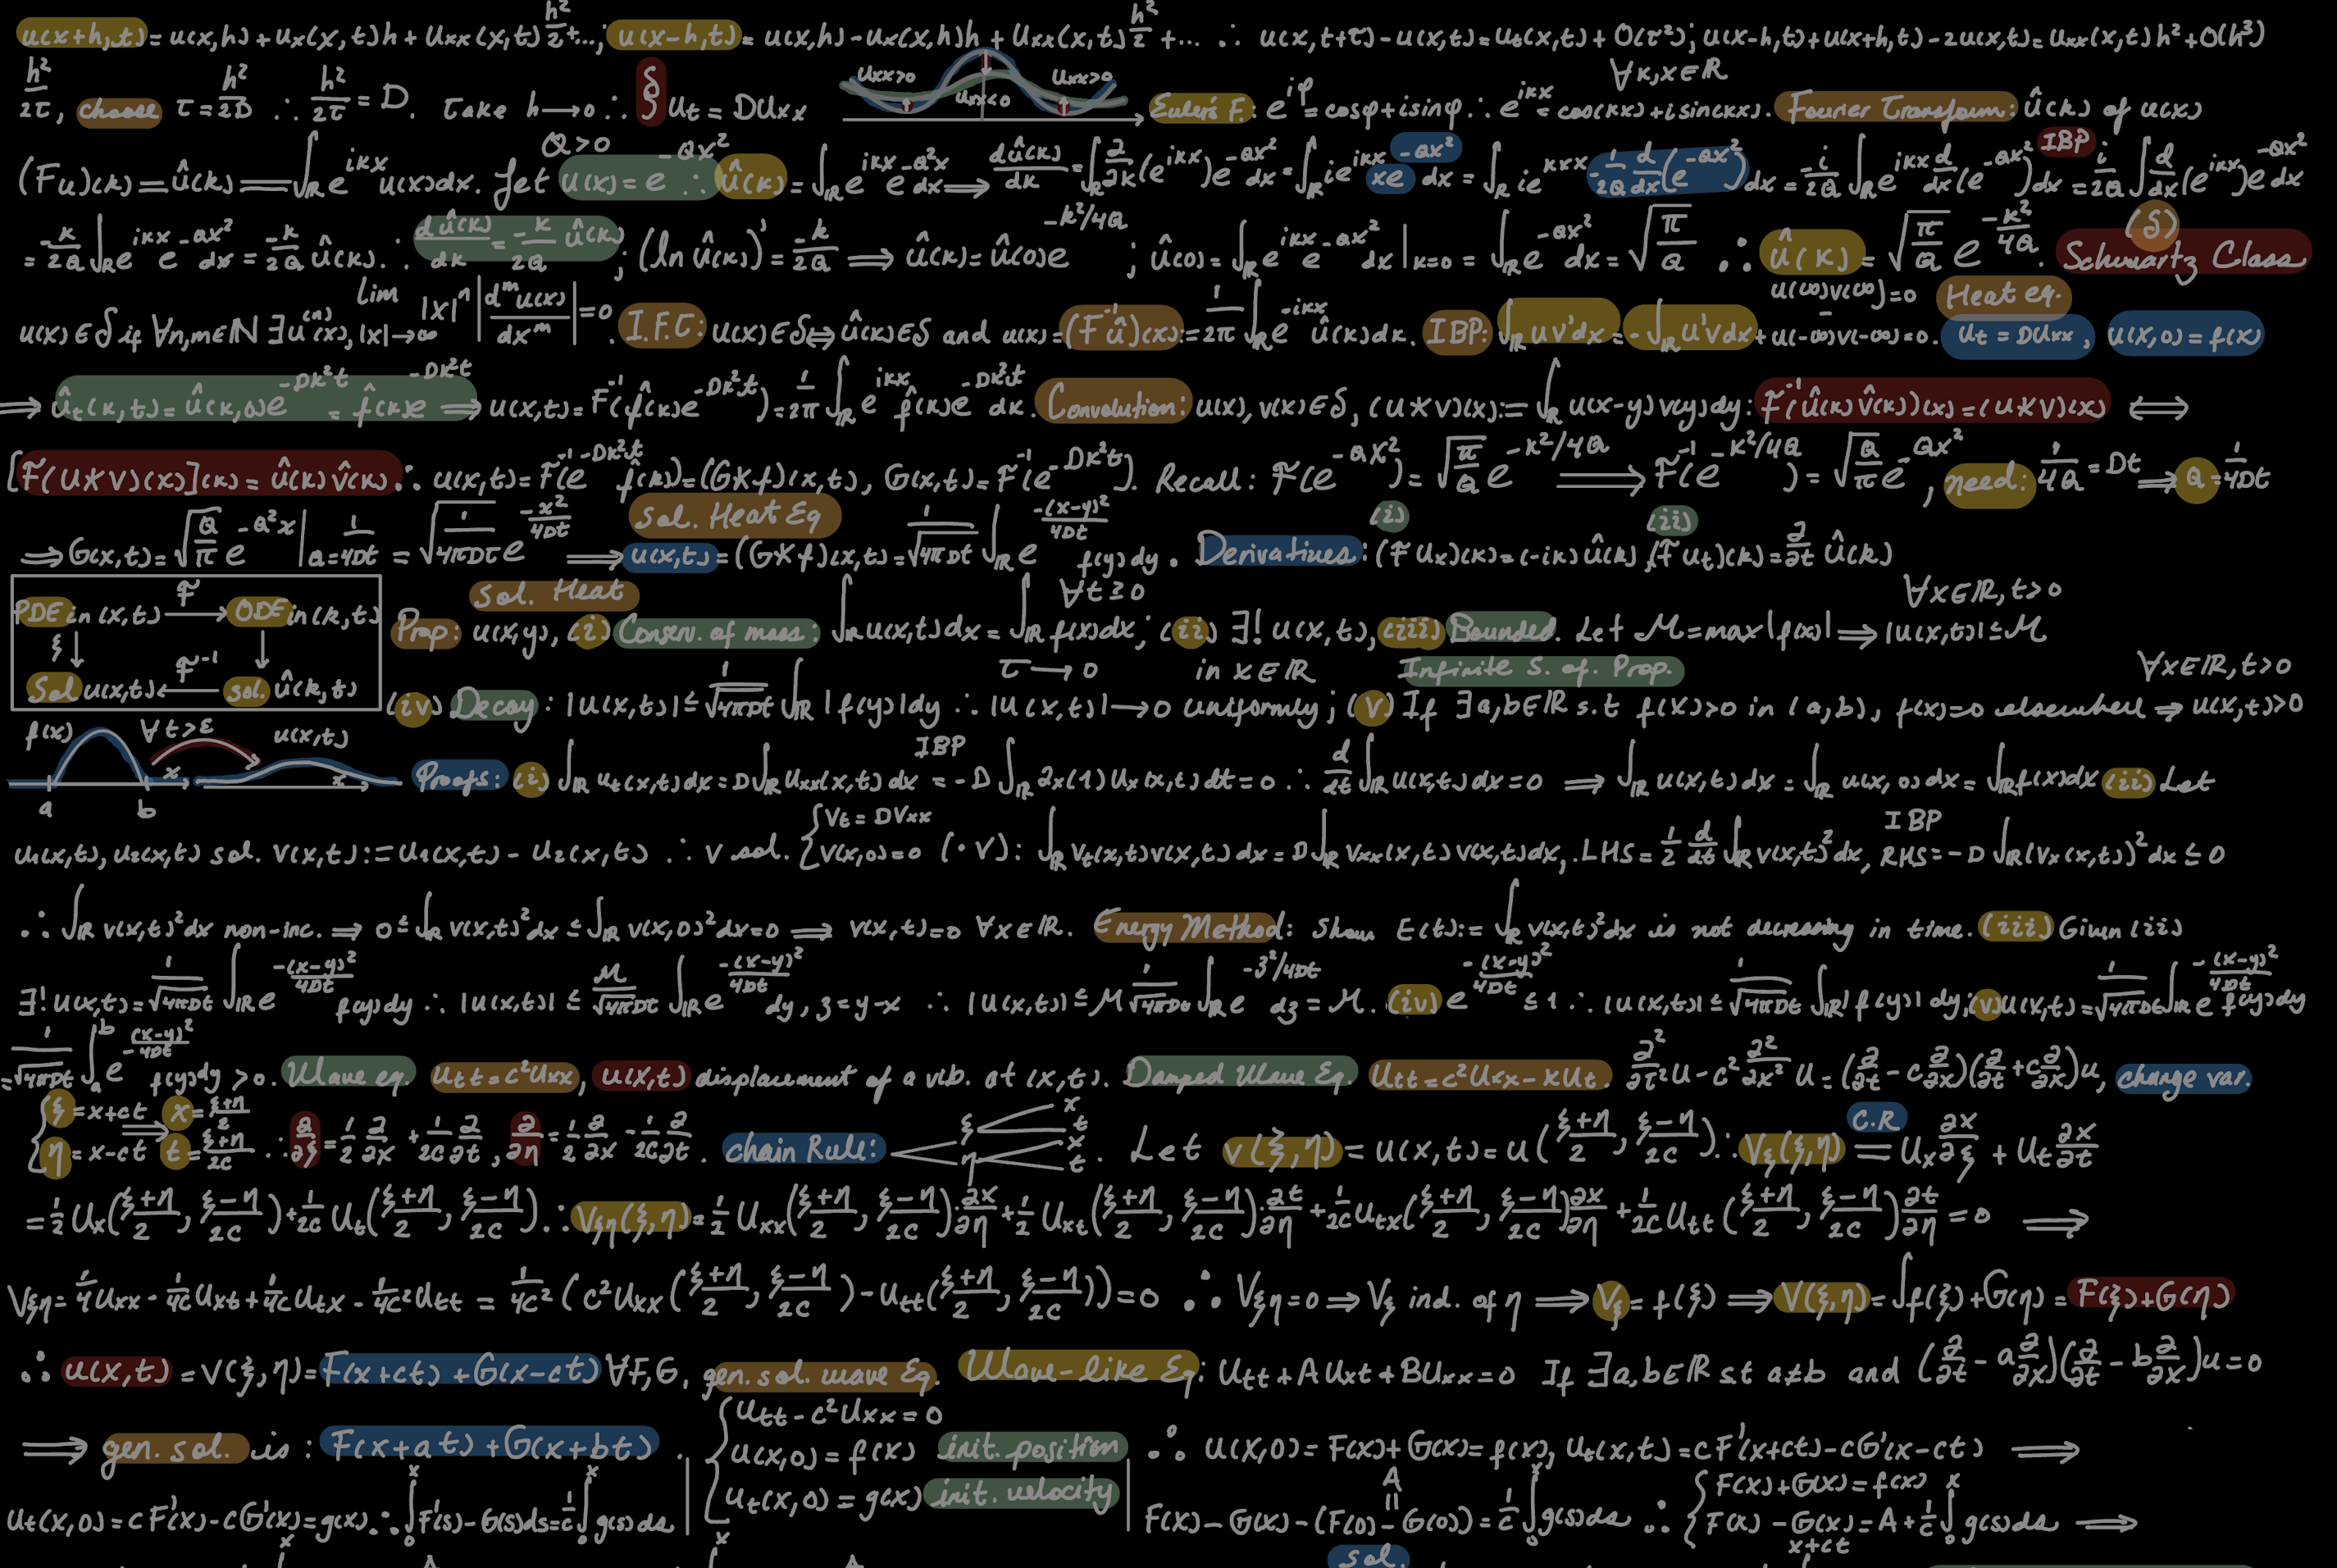 u(x+h,t) = u(x,h) + u_x(x,t)h + u_xx(x,t) h²/2 + ..., ; u(x-h,t) = u(x,h) - u_x(x,h)h + u_xx(x,t) h²/2 + ... ∴ u(x,t+τ) - u(x,t) = u_t(x,t) + O(τ²); u(x-h,t) + u(x+h,t) - 2u(x,t) = u_xx(x,t)h² + O(h³)
h²/2τ, choose τ = h²/2D ∴ h²/2τ = D. Take h→0 ∴ § u_t = Du_xx u_xx>0 u_xx<0 u_xx>0 Euler's F.: e^{iφ} = cosφ + isinφ ∴ e^{ikx} = cos(kx) + isin(kx). ∀k,x∈ℝ Fourier Transform: û(k) of u(x)
(Fu)(k) = û(k) = ∫_ℝ e^{ikx} u(x)dx. Let u(x) = e^{-ax²} a>0 ∴ û(k) = ∫_ℝ e^{ikx} e^{-a²x} dx ⟹ dû(k)/dk = ∫_ℝ ∂/∂k(e^{ikx}) e^{-ax²} dx = ∫_ℝ ie^{ikx} xe^{-ax²} dx = ∫_ℝ ie^{ikx} -1/2a d/dx(e^{-ax²}) dx = -i/2a ∫_ℝ e^{ikx} d/dx(e^{-ax²}) dx =^{IBP} i/2a ∫ d/dx(e^{ikx}) e^{-ax²} dx
= -k/2a ∫_ℝ e^{ikx} e^{-ax²} dx = -k/2a û(k). ∴ dû(k)/dk = -k/2a û(k); (ln û(k))' = -k/2a ⟹ û(k) = û(0)e^{-k²/4a}; û(0) = ∫_ℝ e^{ikx} e^{-ax²} dx |_{k=0} = ∫_ℝ e^{-ax²} dx = √(π/a) ∴ û(k) = √(π/a) e^{-k²/4a}. Schwartz Class (δ)
u(x)∈δ if ∀n,m∈ℕ ∃u^{(n)}(x), lim |x|→∞ |x|^n |d^m u(x)/dx^m| = 0. I.F.T: u(x)∈δ ⟺ û(k)∈δ and u(x) = (F^{-1}û)(x) := 1/2π ∫_ℝ e^{-ikx} û(k)dk. IBP: ∫_ℝ uv'dx = -∫_ℝ u'vdx + u(∞)v(∞) - u(-∞)v(-∞) = 0. Heat eq. u_t = Du_xx, u(x,0) = f(x)
⟹ û_t(k,t) = û(k,0)e^{-Dk²t} = f̂(k)e^{-Dk²t} ⟹ u(x,t) = F^{-1}(f̂(k)e^{-Dk²t}) = 1/2π ∫_ℝ e^{ikx} f̂(k)e^{-Dk²t} dk. Convolution: u(x), v(x)∈δ, (u*v)(x) := ∫_ℝ u(x-y)v(y)dy: F^{-1}(û(k)v̂(k))(x) = (u*v)(x) ⟺
[F(u*v)(x)](k) = û(k)v̂(k) ∴ u(x,t) = F^{-1}(e^{-Dk²t} f̂(k)) = (G*f)(x,t), G(x,t) = F^{-1}(e^{-Dk²t}). Recall: F(e^{-ax²}) = √(π/a) e^{-k²/4a} ⟹ F^{-1}(e^{-k²/4a}) = √(a/π) e^{-ax²}, need: 1/4a = Dt ⟹ a = 1/4Dt
⟹ G(x,t) = √(a/π) e^{-a²x} |_{a=1/4Dt} = √(1/4πDt) e^{-x²/4Dt} ⟹ Sol. Heat Eq u(x,t) = (G*f)(x,t) = 1/√(4πDt) ∫_ℝ e^{-(x-y)²/4Dt} f(y)dy. Derivatives: (i) (Fu_x)(k) = (-ik)û(k), (ii) (Fu_t)(k) = ∂/∂t û(k)
PDE in (x,t) F→ ODE in (k,t)
Sol u(x,t) ←F^{-1} sol. û(k,t)
Sol. Heat
Prop: u(x,y), (i) Conserv. of mass: ∫_ℝ u(x,t)dx = ∫_ℝ f(x)dx, ∀t≥0; (ii) ∃! u(x,t), (iii) Bounded. Let M = max|f(x)| ⟹ |u(x,t)| ≤ M ∀x∈ℝ, t>0
(iv) Decay: |u(x,t)| ≤ 1/√(4πDt) ∫_ℝ |f(y)|dy ∴ |u(x,t)| → 0 τ→0 uniformly in x∈ℝ; (v) Infinite S. of. Prop. If ∃a,b∈ℝ s.t f(x)>0 in (a,b), f(x)=0 elsewhere ⟹ u(x,t)>0 ∀x∈ℝ, t>0
f(x) ∀t>ε u(x,t) a b x x
Proofs: (i) ∫_ℝ u_t(x,t)dx = D∫_ℝ u_xx(x,t)dx =^{IBP} -D∫_ℝ ∂x(1)u_x(x,t)dt = 0 ∴ d/dt ∫_ℝ u(x,t)dx = 0 ⟹ ∫_ℝ u(x,t)dx = ∫_ℝ u(x,0)dx = ∫_ℝ f(x)dx (ii) Let
u₁(x,t), u₂(x,t) sol. v(x,t) := u₁(x,t) - u₂(x,t) ∴ v sol. { v_t = Dv_xx v(x,0) = 0 (·v): ∫_ℝ v_t(x,t)v(x,t)dx = D∫_ℝ v_xx(x,t)v(x,t)dx, LHS = 1/2 d/dt ∫_ℝ v(x,t)²dx, RHS =^{IBP} -D∫_ℝ (v_x(x,t))²dx ≤ 0
∴ ∫_ℝ v(x,t)²dx non-inc. ⟹ 0 ≤ ∫_ℝ v(x,t)²dx ≤ ∫_ℝ v(x,0)²dx = 0 ⟹ v(x,t) = 0 ∀x∈ℝ. Energy Method: Show E(t) := ∫_ℝ v(x,t)²dx is not decreasing in time. (iii) Given (ii)
∃! u(x,t) = 1/√(4πDt) ∫_ℝ e^{-(x-y)²/4Dt} f(y)dy ∴ |u(x,t)| ≤ M/√(4πDt) ∫_ℝ e^{-(x-y)²/4Dt} dy, z = y-x ∴ |u(x,t)| ≤ M 1/√(4πDt) ∫_ℝ e^{-z²/4Dt} dz = M. (iv) e^{-(x-y)²/4Dt} ≤ 1 ∴ |u(x,t)| ≤ 1/√(4πDt) ∫_ℝ |f(y)|dy; (v) u(x,t) = 1/√(4πDt) ∫_ℝ e^{-(x-y)²/4Dt} f(y)dy
= 1/√(4πDt) ∫_a^b e^{-(x-y)²/4Dt} f(y)dy > 0. Wave eq. u_tt = c²u_xx, u(x,t) displacement of a vib. at (x,t). Damped Wave Eq. u_tt = c²u_xx - ku_t. ∂²/∂τ² u - c² ∂²/∂x² u = (∂/∂t - c∂/∂x)(∂/∂t + c∂/∂x)u, change var.
{ ξ = x+ct η = x-ct ⟹ x = ξ+η/2 t = ξ+η/2c ∴ ∂/∂ξ = 1/2 ∂/∂x + 1/2c ∂/∂t, ∂/∂η = 1/2 ∂/∂x - 1/2c ∂/∂t. chain Rule: ξ η x t x t. Let v(ξ,η) = u(x,t) = u(ξ+η/2, ξ-η/2c) ∴ V_ξ(ξ,η) =^{C.R} U_x ∂x/∂ξ + U_t ∂x/∂t
= 1/2 U_x(ξ+η/2, ξ-η/2c) + 1/2c U_t(ξ+η/2, ξ-η/2c). ∴ V_ξη(ξ,η) = 1/2 U_xx(ξ+η/2, ξ-η/2c)·∂x/∂η + 1/2 U_xt(ξ+η/2, ξ-η/2c)·∂t/∂η + 1/2c U_tx(ξ+η/2, ξ-η/2c)∂x/∂η + 1/2c U_tt(ξ+η/2, ξ-η/2c)∂t/∂η = 0 ⟹
V_ξη = 1/4 U_xx - 1/4c U_xt + 1/4c U_tx - 1/4c² U_tt = 1/4c² (c²U_xx(ξ+η/2, ξ-η/2c) - U_tt(ξ+η/2, ξ-η/2c)) = 0 ∴ V_ξη = 0 ⟹ V_ξ ind. of η ⟹ V_ξ = f(ξ) ⟹ V(ξ,η) = ∫f(ξ) + G(η) = F(ξ) + G(η)
∴ u(x,t) = V(ξ,η) = F(x+ct) + G(x-ct) ∀F,G, gen. sol. wave Eq. Wave-like Eq: U_tt + AU_xt + BU_xx = 0 If ∃a,b∈ℝ st a≠b and (∂/∂t - a∂/∂x)(∂/∂t - b∂/∂x)u = 0
⟹ gen. sol. is: F(x+at) + G(x+bt). { U_tt - c²U_xx = 0 u(x,0) = f(x) init. position u_t(x,0) = g(x) init. velocity ∴ u(x,0) = F(x) + G(x) = f(x), u_t(x,t) = cF'(x+ct) - cG'(x-ct) ⟹
u_t(x,0) = cF'(x) - cG'(x) = g(x). ∴ ∫_0^x F'(s) - G(s)ds = 1/c ∫_0^x g(s)ds F(x) - G(x) - (F(0) - G(0)) = 1/c ∫_0^x g(s)ds A = ∴ { F(x) + G(x) = f(x) F(x) - G(x) = A + 1/c ∫_0^x g(s)ds ⟹
sol. x+ct